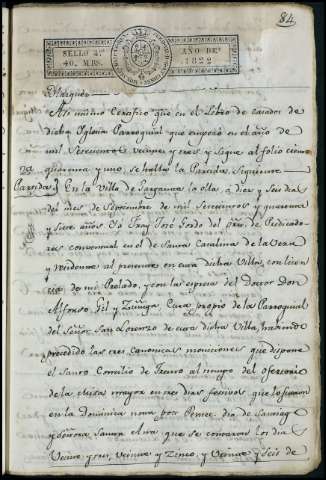 84
SELLO 4º
40. MRS.
AÑO DE
1822
Marquez
Asi mismo Certifico que en el Libro de casados de
dicha Iglesia Parroquial que empezó en el año de
mil setecientos veinte y tres y sigue al folio ciento
quarenta y uno, se halla la Partida Siguiente
Partida} En la Villa de Garganta la olla, a diez y seis dias
del mes de Septiembre de mil Setecientos y quarenta
y siete años Yo Fray Jose del ôrn. de Predicado-
res conventual en el de Santa Catalina de la Vera
y residente al presente en esta dicha Villa, con licen
cia de mi Prelado, y con la expresa del Doctor Don
Alfonso Gil y Zuñiga Cura propio de la Parroquial
del Señor San Lorenzo de esta dicha Villa, haviendo
precedido las tres canonicas moniciones que dispone
el Santo Concilio de Trento al tiempo del ofertorio
de la Misa mayor en tres dias festivos que lo fueron
en la Dominica nona post Pente. dia de Santiago
y Señora Santa Ana que se contaron los dias
Veinte y tres, veinte y Zinco, y Veinte y seis de